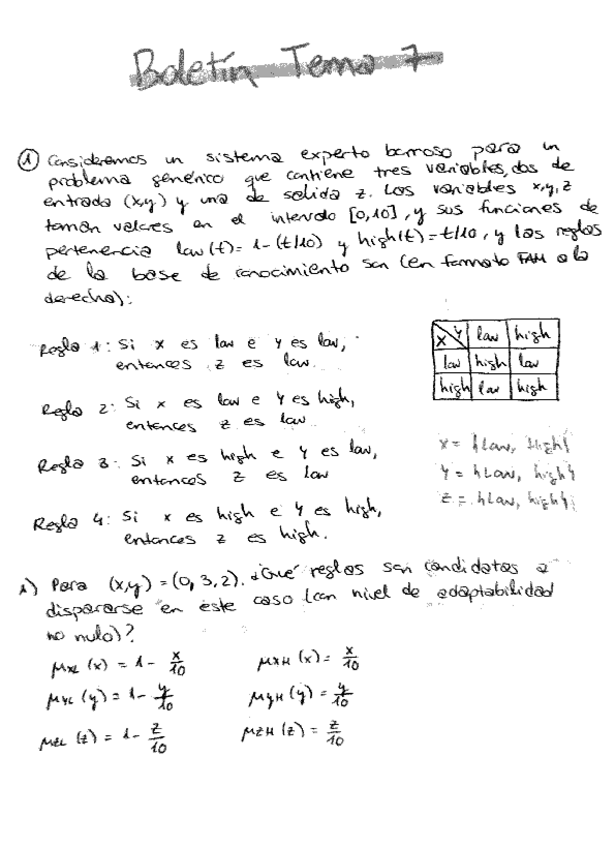 Boletín Tema 7
① Consideremos un sistema experto borroso para un
problema genérico que contiene tres variables, dos de
entrada (x,y) y una de salida z. Las variables x,y,z
toman valores en el intervalo [0,10], y sus funciones de
pertenencia low(t)=1-(t/10) y high(t)=t/10, y las reglas
de la base de conocimiento son (en formato FAM a la
derecha):
Regla 1: Si x es low e y es low,
entonces z es low.
Regla 2: Si x es low e y es high,
entonces z es low
Regla 3: Si x es high e y es low,
entonces z es low
Regla 4: Si x es high e y es high,
entonces z es high.
X Y low high
low high low
high low high
x = {Low, High}
y = {Low, high}
z = {Low, high}
1) Para (x,y) = (0, 3,2). ¿Qué reglas son candidatas a
dispararse en este caso (con nivel de adaptabilidad
no nulo)?
μxL (x) = 1 - x/10 μxH (x) = x/10
μyL (y) = 1 - y/10 μyH (y) = y/10
μzL (z) = 1 - z/10 μzH (z) = z/10